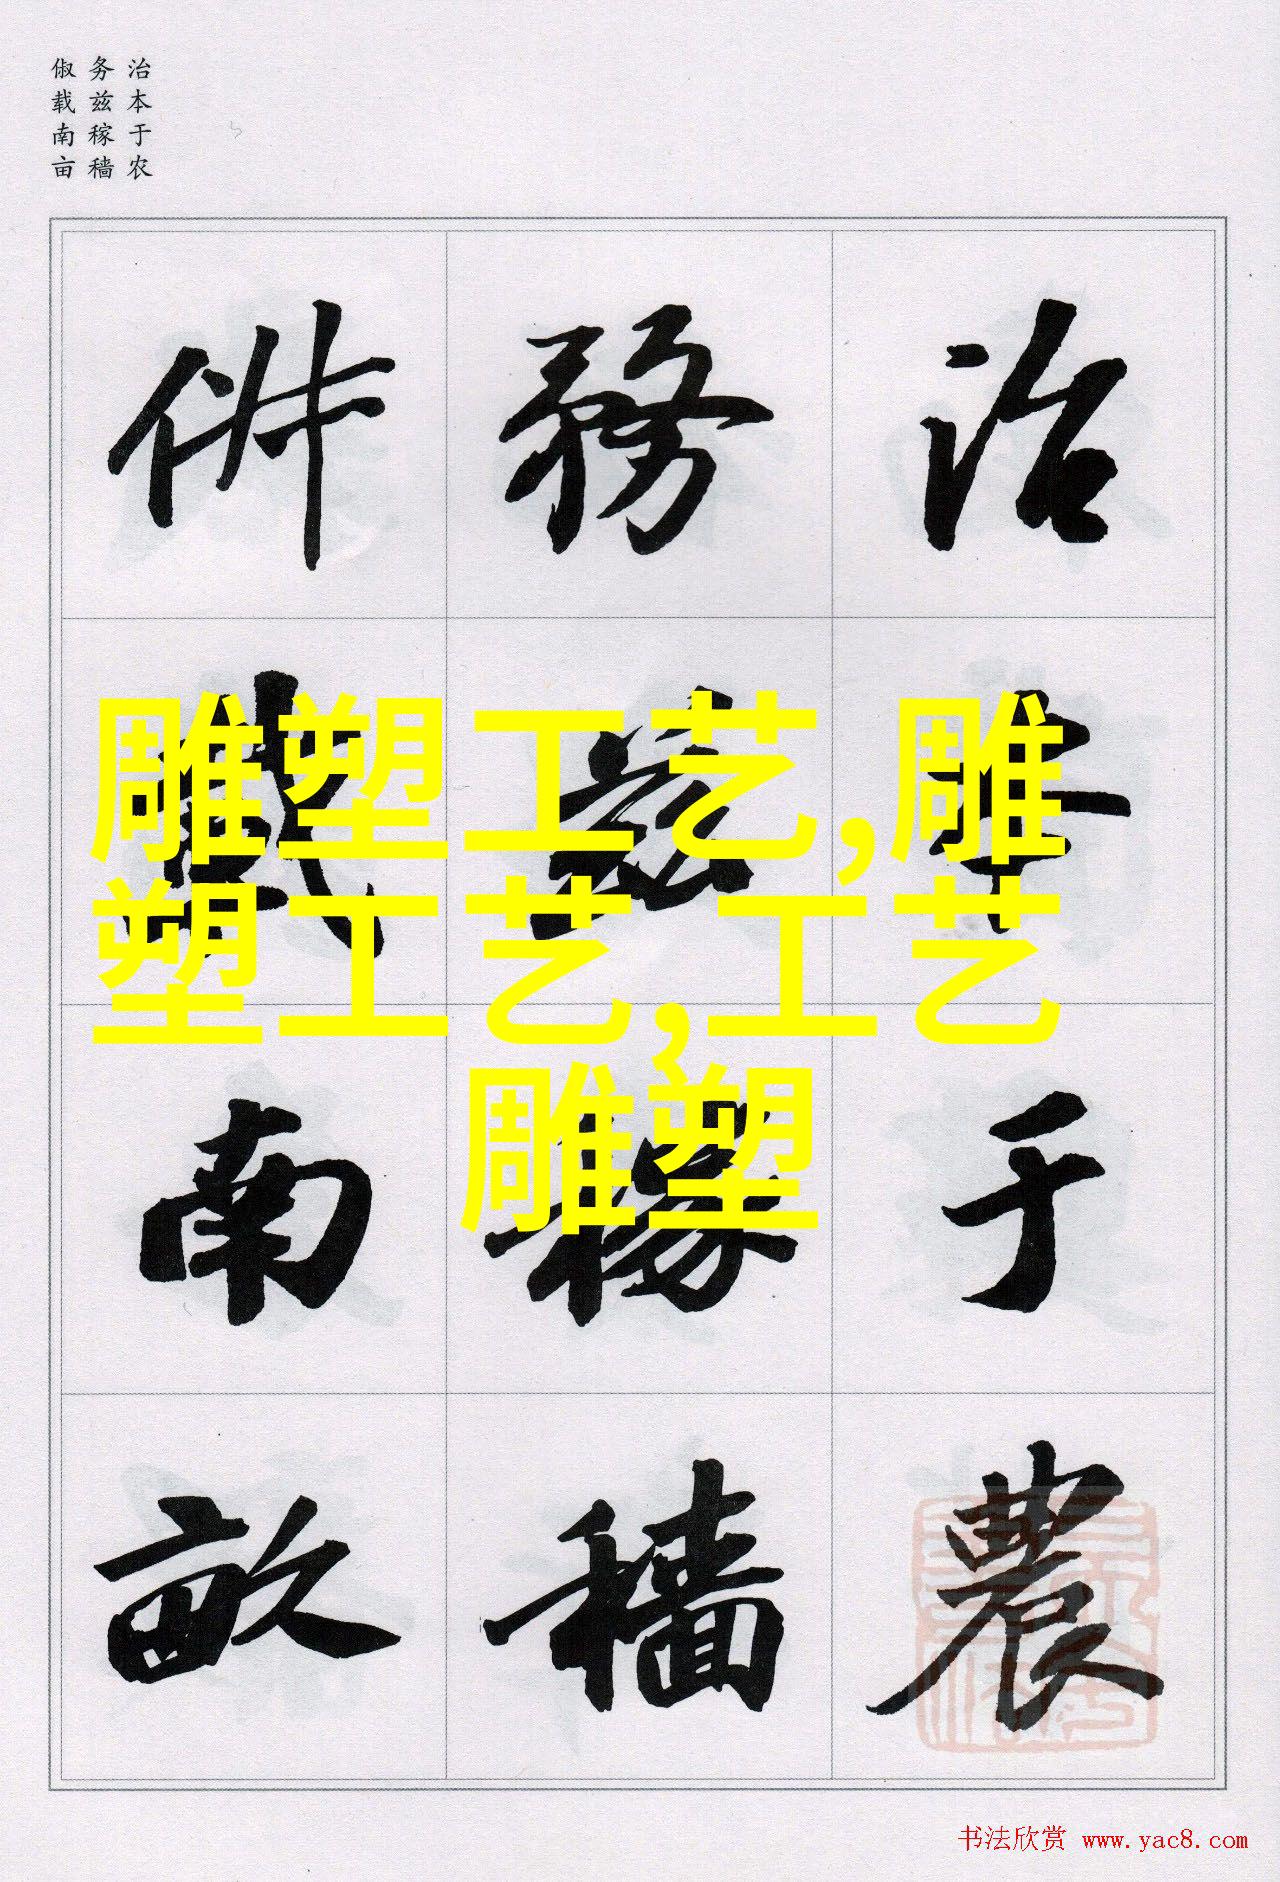 治本于农
务兹稼穑
俶载南亩
治本于農
務兹稼穡
俶載南畝
雕塑工艺,雕
塑工艺,工艺
雕塑
书法欣赏 www.yac8.com